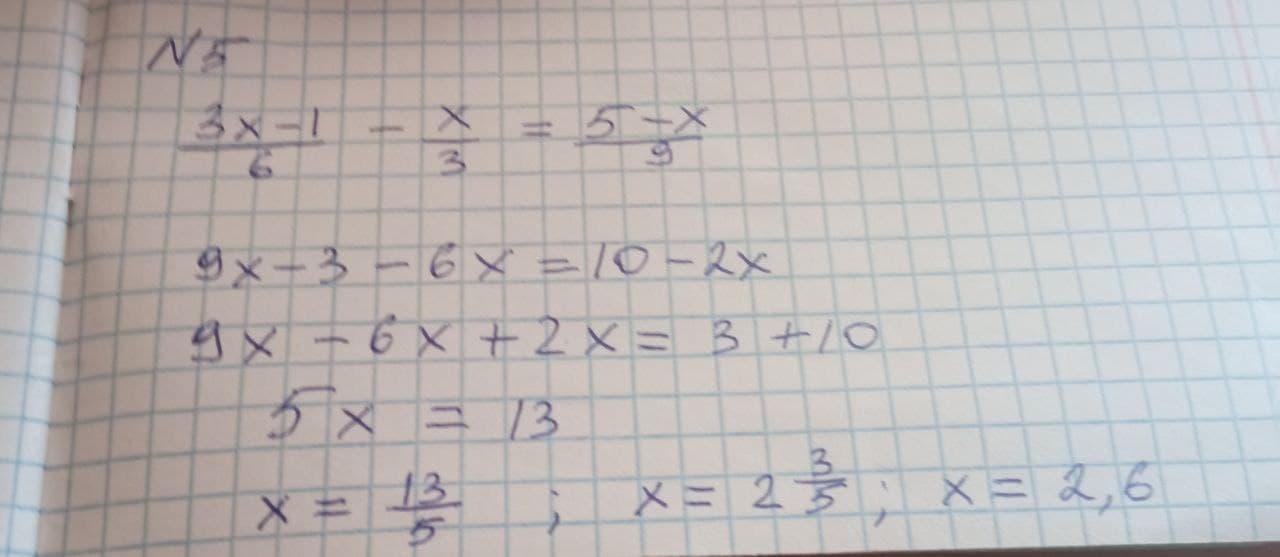 N5
(3x-1)/6 - x/3 = (5-x)/9
9x-3-6x=10-2x
9x-6x+2x=3+10
5x=13
x=13/5; x=2 3/5; x=2,6